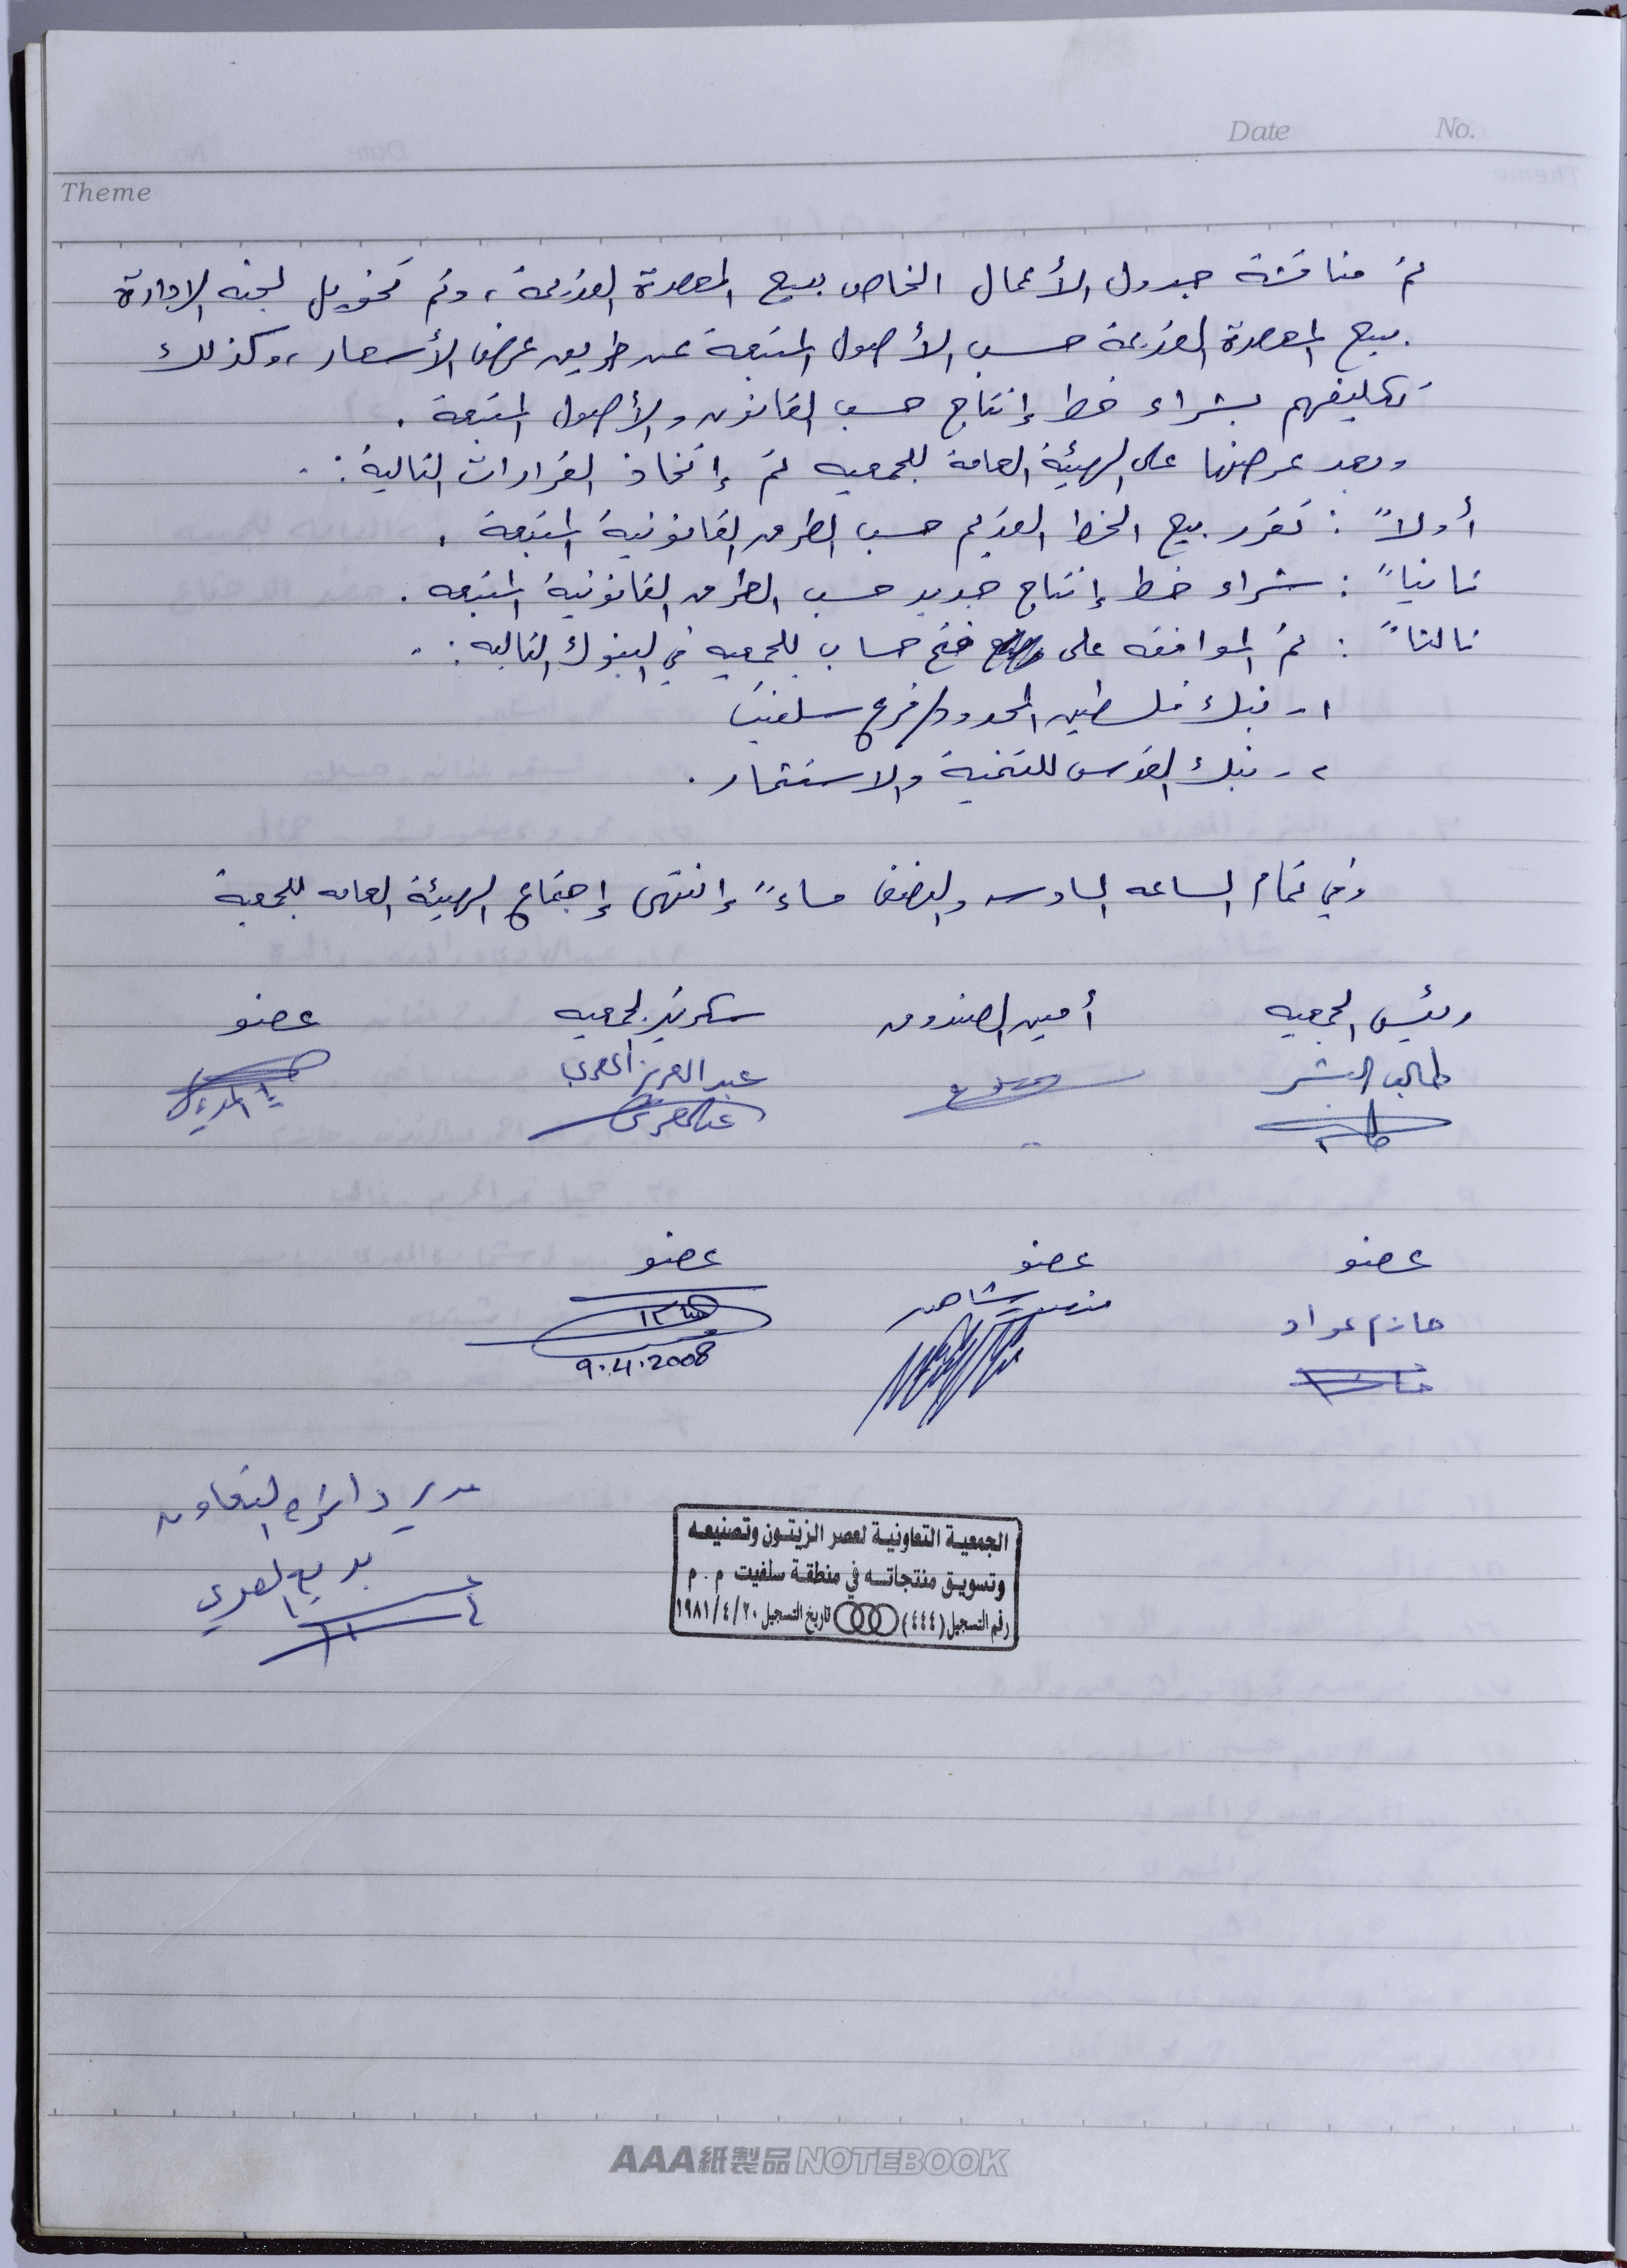 Date No.
Theme
تم مناقشة جدول الأعمال الخاص ببيع المعصرة القديمة ، وتم تخويل لجنه الادارة
ببيع المعصرة القديمة حسب الأصول المتبعة عن طريق عرض الأسعار ، وكذلك
تكليفهم بشراء خط إنتاج حسب القانون والأصول المتبعة .
وبعد عرضها على الهيئة العامة للجمعيه تم إتخاذ القرارات التالية :.
أولاً : تقرر بيع الخط القديم حسب الطرق القانونية المتبعة .
ثانياً : شراء خط إنتاج جديد حسب الطرق القانونية المتبعه .
ثالثاً : تم الموافقه على فتح حساب للجمعيه في البنوك التاليه :.
١- بنك فلسطين المحدود/فرع سلفيت
٢- بنك القدس للتنمية والاستثمار .
وفي تمام الساعه السادسه والنصف مساءً إنتهى إجتماع الهيئة العامه للجمعية
رئيس الجمعيه أمين الصندوق سكرتير الجمعيه عضو
طالب البشر عبد العزيز المصري
عضو عضو عضو
حازم عواد شاهين
9.4.2008
مدير دائرة التعاون
بديع المصري
الجمعية التعاونية لعصر الزيتون وتصنيعه
وتسويق منتجاته في منطقة سلفيت م . م
رقم التسجيل (٤٤٤) تاريخ التسجيل ١٩٨١/٤/٢٠
AAA紙製品NOTEBOOK